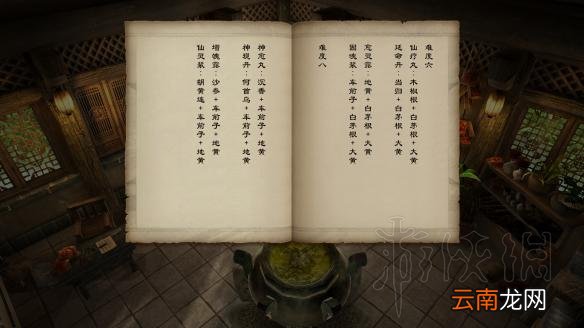 难度六
仙疗丸：木椒根+白茅根+大黄
延命丹：当归+白茅根+大黄
愈灵露：地黄+白茅根+大黄
固魂浆：车前子+白茅根+大黄
难度八
神愈丸：沉香+车前子+地黄
神现丹：何首乌+车前子+地黄
增魂露：沙参+车前子+地黄
仙灵浆：胡黄连+车前子+地黄
游侠网
云南龙网